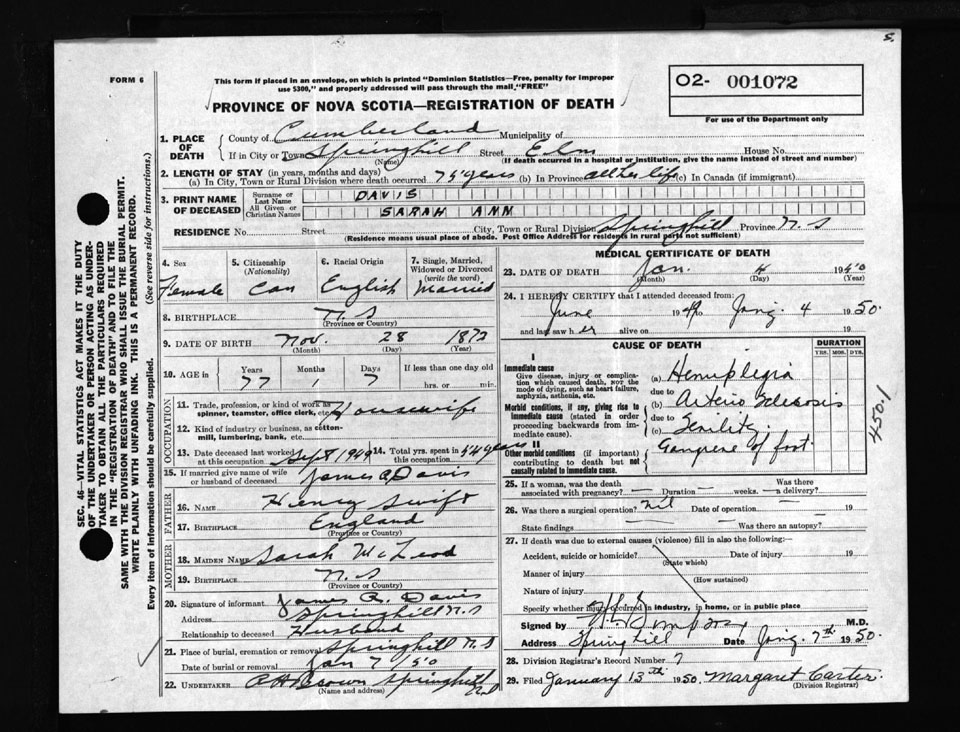 S.
FORM 6
This form if placed in an envelope, on which is printed "Dominion Statistics—Free, penalty for improper
use $300," and properly addressed will pass through the mail "FREE"
PROVINCE OF NOVA SCOTIA—REGISTRATION OF DEATH
O2- 001072
For use of the Department only
1. PLACE OF DEATH
County of Cumberland Municipality of
If in City or Town Springhill Street Elm House No.
(Name) (If death occurred in a hospital or institution, give the name instead of street and number)
2. LENGTH OF STAY (in years, months and days)
(a) In City, Town or Rural Division where death occurred 75 years (b) In Province all her life (c) In Canada (if immigrant)
3. PRINT NAME OF DECEASED
Surname or Last Name DAVIS
All Given or Christian Names SARAH ANN
RESIDENCE No. Street City, Town or Rural Division Springhill Province N.S
(Residence means usual place of abode. Post Office Address for residents in rural parts not sufficient)
4. Sex Female
5. Citizenship (Nationality) Can
6. Racial Origin English
7. Single, Married, Widowed or Divorced (write the word) Married
8. BIRTHPLACE N.S
(Province or Country)
9. DATE OF BIRTH Nov. 28 1872
(Month) (Day) (Year)
10. AGE in Years 77 Months 1 Days 7 If less than one day old hrs. or min.
OCCUPATION
11. Trade, profession, or kind of work as spinner, teamster, office clerk, etc. Housewife
12. Kind of industry or business, as cotton-mill, lumbering, bank, etc.
13. Date deceased last worked at this occupation Sept 1949 14. Total yrs. spent in this occupation 54 years
15. If married give name of wife or husband of deceased James R Davis
FATHER
16. NAME Henry Swift
17. BIRTHPLACE England
(Province or Country)
MOTHER
18. MAIDEN NAME Sarah McLeod
19. BIRTHPLACE N.S
(Province or Country)
20. Signature of informant James R. Davis
Address Springhill N.S
Relationship to deceased Husband
21. Place of burial, cremation or removal Springhill N.S
Date of burial or removal Jan 7 1950
22. UNDERTAKER Brown Springhill
(Name and address)
MEDICAL CERTIFICATE OF DEATH
23. DATE OF DEATH Jan. 4 1950
(Month) (Day) (Year)
24. I HEREBY CERTIFY that I attended deceased from:
June 1949 to Jany. 4 1950.
and last saw her alive on 19
CAUSE OF DEATH
DURATION
YRS. MOS. DYS.
I
Immediate cause
Give disease, injury or complication which caused death, NOT the mode of dying, such as heart failure, asphyxia, asthenia, etc.
(a) Hemiplegia
due to
Morbid conditions, if any, giving rise to immediate cause (stated in order proceeding backwards from immediate cause).
(b) Arterio Sclerosis
due to
(c) Senility
II
Other morbid conditions (if important) contributing to death but not causally related to immediate cause.
Gangrene of foot
450.1
25. If a woman, was the death associated with pregnancy? — Duration — weeks. Was there a delivery? —
26. Was there a surgical operation? nil Date of operation — 19
State findings — Was there an autopsy?
27. If death was due to external causes (violence) fill in also the following:—
Accident, suicide or homicide? Date of injury 19
(State which)
Manner of injury
(How sustained)
Nature of injury
Specify whether injury occurred in industry, in home, or in public place
Signed by Simpson M.D.
Address Springhill Date Jany. 7th 1950.
28. Division Registrar's Record Number 7
29. Filed January 13th 1950. Margaret Carter.
(Division Registrar)
SEC. 46—VITAL STATISTICS ACT MAKES IT THE DUTY
OF THE UNDERTAKER OR PERSON ACTING AS UNDER-
TAKER TO OBTAIN ALL THE PARTICULARS REQUIRED
IN THE "REGISTRATION OF DEATH" AND TO FILE THE
SAME WITH THE DIVISION REGISTRAR WHO SHALL ISSUE THE BURIAL PERMIT.
WRITE PLAINLY WITH UNFADING INK. THIS IS A PERMANENT RECORD.
Every item of information should be carefully supplied. (See reverse side for instructions.)